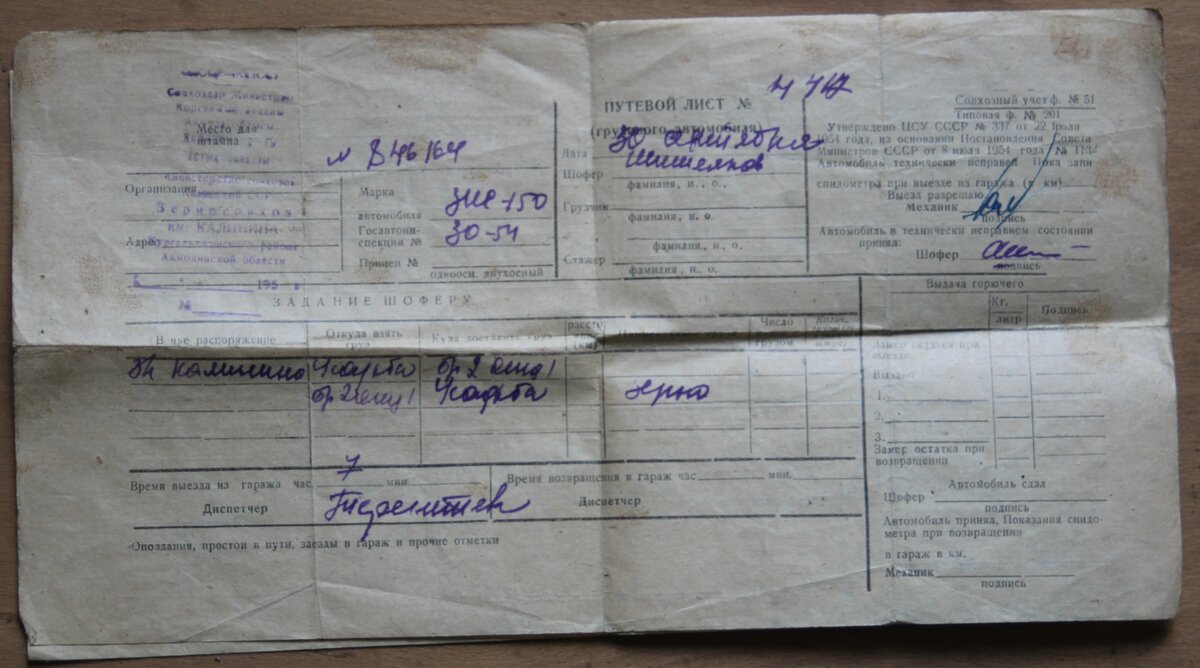 Совхоздар Министрлі
Место для
штампа
№ 846164
Министерство совхозов
Организация
Зерносовхоз
им. КАЛИНИНА
Адрес
Кургальджинского района
Акмолинской области
195 г.
№
Марка
автомобиля ЗИС-150
Госавтоин-
спекции № 30-54
Прицеп №
одноосн. двухосный
ПУТЕВОЙ ЛИСТ № 417
(грузового автомобиля)
Дата 30
Шофер
фамилия, и., о.,
Грузчик
фамилия, и. о.
фамилия., и., о.
Стажер
фамилия, и., о.
Совхозный учет ф. № 51
Типовая ф. № 201
Утверждено ЦСУ СССР № 337 от 22 июля
1954 года, на основании Постановления Совета
Министров СССР от 8 июля 1954 года №
Автомобиль технически исправен Пока зани
спидометра при выезде из гаража (в км)
Выезд разрешаю
Механик
подпись
Автомобиль в технически исправном состоянии
принял:
Шофер
подпись
ЗАДАНИЕ ШОФЕРУ
Выдача горючего
В чье распоряжение
Откуда взять
груз
Куда доставить груз
расстс
(км)
Число
Кг.
литр
Подпись
Калинина
Замер остатка при
выезде
Выдано
1.
2.
3.
Замер остатка при
возвращении
Время выезда из гаража час. 7 мин.
Время возвращения в гараж час мин.
Диспетчер Терентьев
Диспетчер
Опоздания, простои в пути, заезды в гараж и прочие отметки
Автомобиль сдал
Шофер
подпись
Автомобиль принял, Показания спидо-
метра при возвращении
в гараж в км.
Механик
подпись